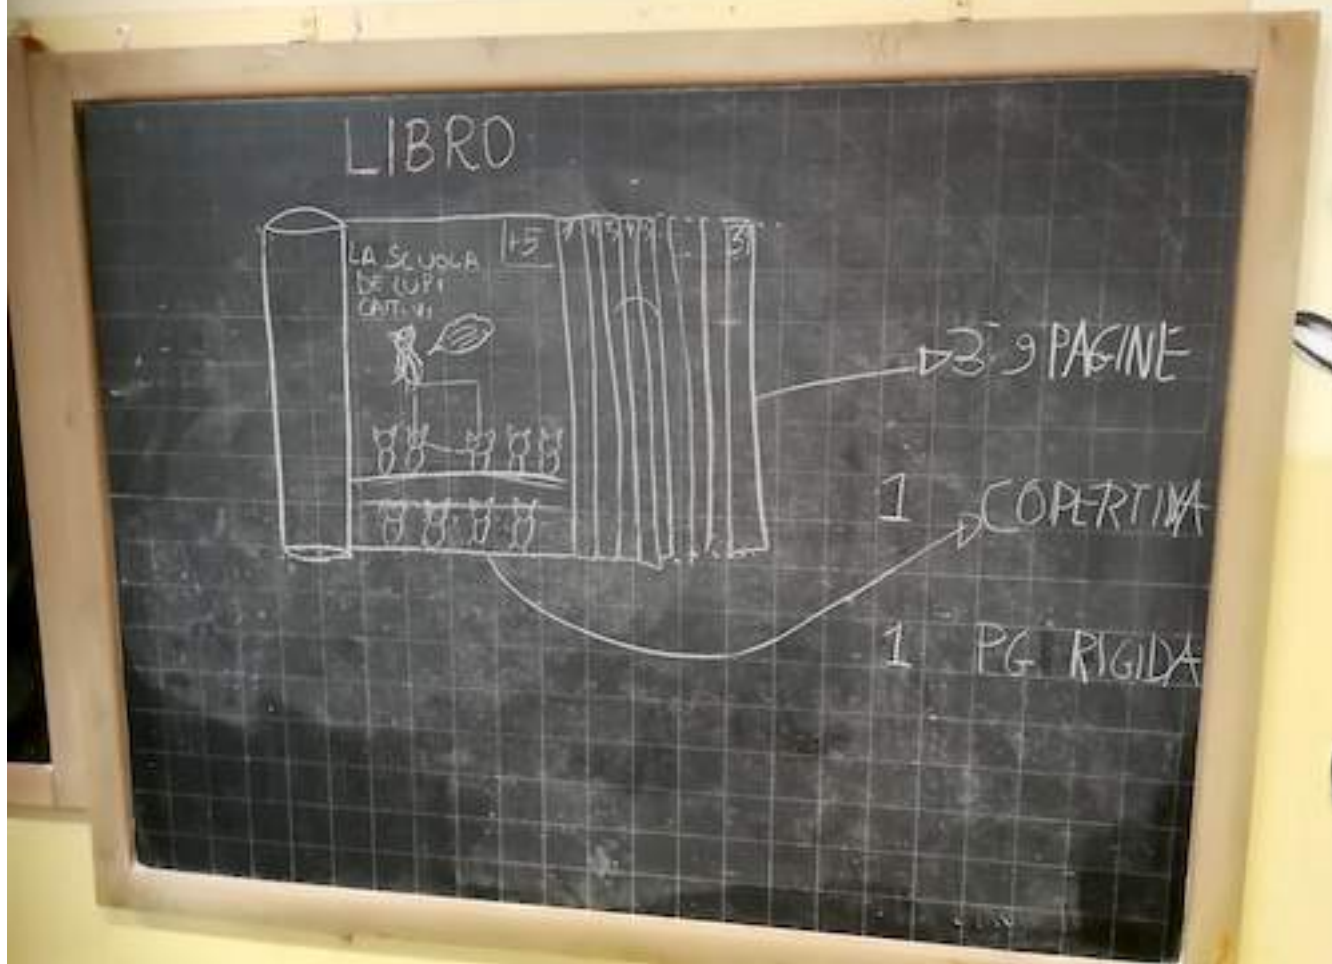 LIBRO
LA SCUOLA
DE LUPI
CATTIVI
+5
39 PAGINE
1 COPERTINA
1 PG RIGIDA